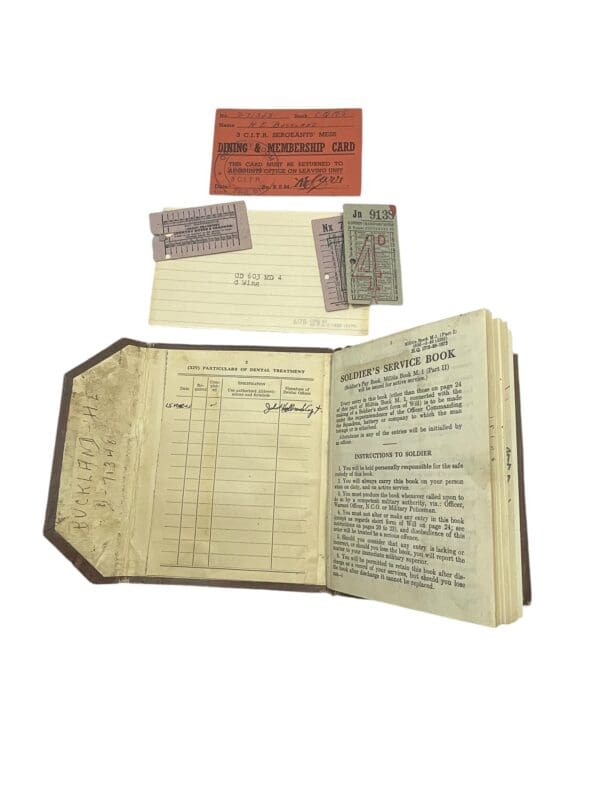 No. D-71348 Rank
Name H E
3 C.I.T.R. SERGEANTS' MESS
DINING & MEMBERSHIP CARD
THIS CARD MUST BE RETURNED TO
ACCOUNTS OFFICE ON LEAVING UNIT
3 C.I.T.R.
Date
Jn 9139
4D
Nx 7
CD 603 MD 4
d Wing
BUCKLAND H E
D-71348
2
(XIV) PARTICULARS OF DENTAL TREATMENT
Date
Re-quired
Com-plet-ed
SPECIFICATION
Use authorized Abbrevi-ations and Symbols
Signature of Dental Officer
Militia Book M.1 (Part I)
SOLDIER'S SERVICE BOOK
(Soldier's Pay Book, Militia Book M.1, (Part II)
will be issued for active service.)
Every entry in this book (other than those on page 24
of this part of Militia Book M. 1, connected with the
making of a Soldier's short form of Will) is to be made
under the superintendence of the Officer Commanding
the Squadron, battery or company to which the man
belongs or is attached.
Alterations in any of the entries will be initialled by
an officer.
INSTRUCTIONS TO SOLDIER
1. You will be held personally responsible for the safe
custody of this book.
2. You will always carry this book on your person
when on duty, and on active service.
3. You must produce the book whenever called upon to
do so by a competent military authority, viz.: Officer,
Warrant Officer, N.C.O. or Military Policeman.
4. You must not alter or make any entry in this book
(except as regards short form of Will on page 24; see
instructions on pages 20 to 23), and disobedience of this
order will be treated as a serious offence.
5. Should you consider that any entry is lacking or
incorrect, or should you lose the book, you will report the
matter to your immediate military superior.
6. You will be permitted to retain this book after dis-
charge as a record of your services, but should you lose
the book after discharge it cannot be replaced.